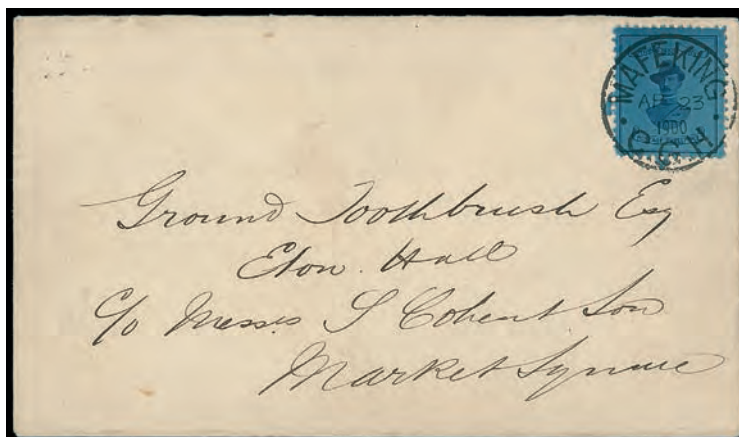 MAFEKING
AP 23
1900
C.G.H.
Ground Toothbrush Esq
Eton Hall
c/o Messrs S Cohen & Son
Market Square